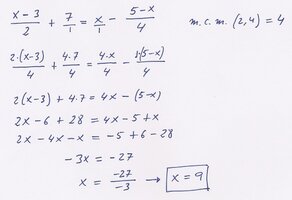 x - 3/2 + 7/1 = x/1 - 5-x/4 m.c.m. (2,4) = 4
2·(x-3)/4 + 4·7/4 = 4·x/4 - 1(5-x)/4
2(x-3) + 4·7 = 4x - (5-x)
2x - 6 + 28 = 4x - 5 + x
2x - 4x - x = -5 + 6 - 28
-3x = -27
x = -27/-3 → x = 9